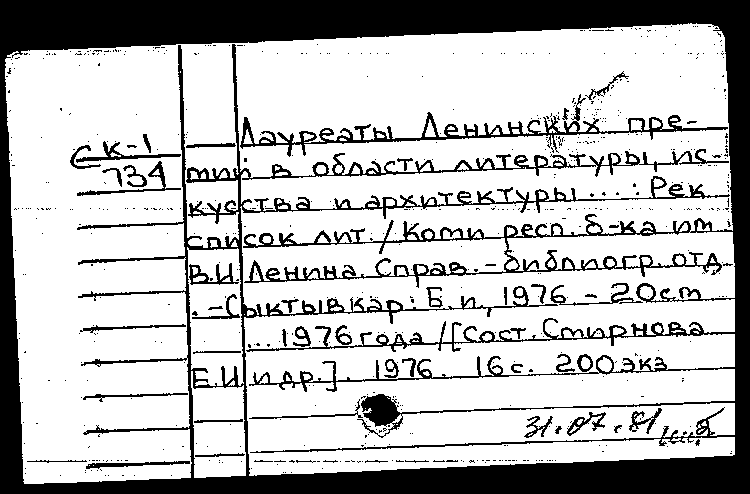 Лауреаты Ленинских пре-
СК-1
734
мий в области литературы, ис-
кусства и архитектуры ... : Рек
список лит. / Коми респ. б-ка им.
В.И. Ленина. Справ.-библиогр. отд
. - Сыктывкар: Б.и., 1976 - 20см
... 1976 года / [Сост. Смирнова
Е.И и др.]. 1976. 16 с. 200 экз
31.07.81